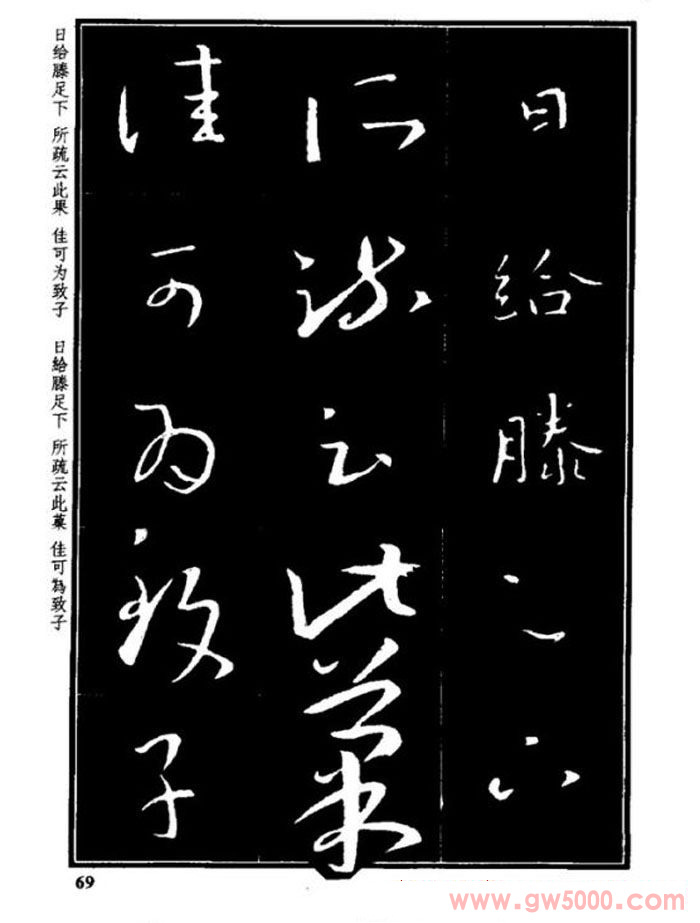 日給滕足下
所疏云此菓
佳可為致子
日给滕足下 所疏云此果 佳可为致子
日給滕足下 所疏云此菓 佳可為致子
69
www.gw5000.com